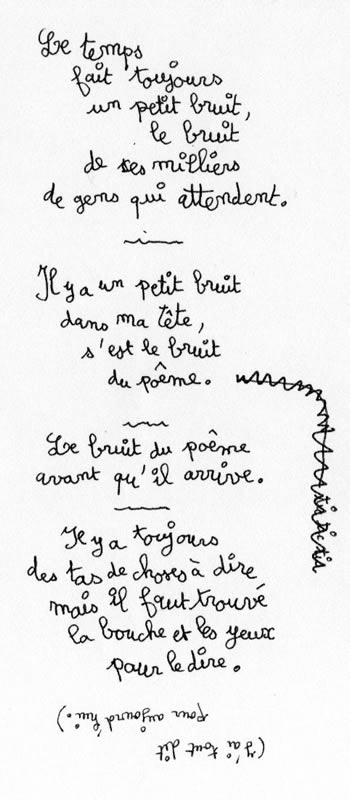 Le temps
fait toujours
un petit bruit,
le bruit
de ses milliers
de gens qui attendent.
Il y a un petit bruit
dans ma tête,
s'est le bruit
du poême.
Le bruit du poême
avant qu'il arrive.
Il y a toujours
des tas de choses à dire,
mais il faut trouvé
la bouche et les yeux
pour le dire.
(J'ai tout dit
pour aujourd'hui.)